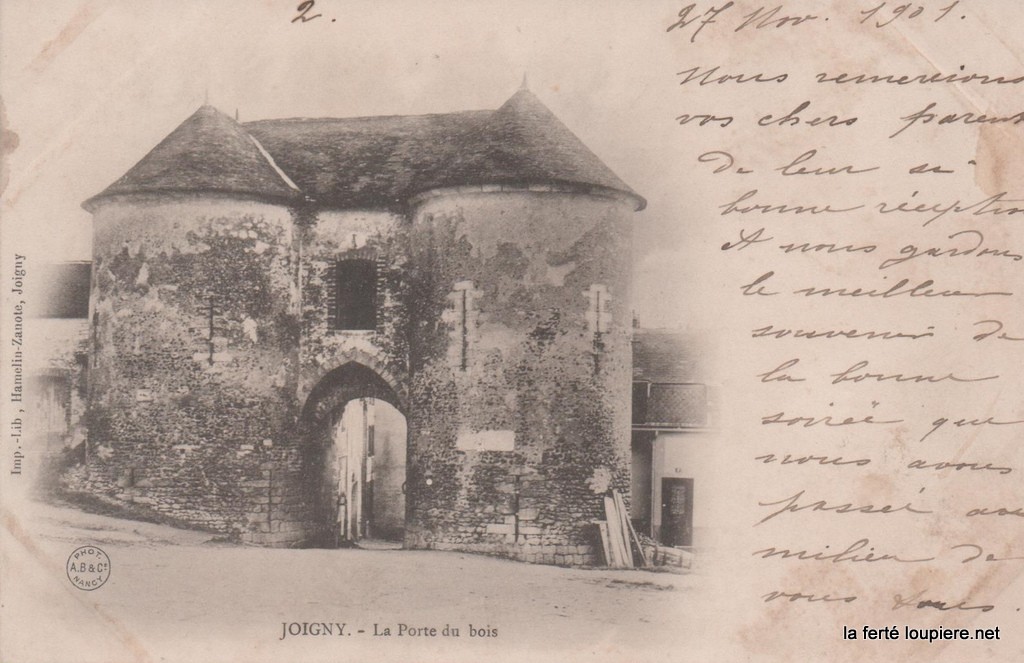 2.
27 Nov. 1901.
Nous remercions
vos chers parents
De leur si
bonne réception
Et nous gardons
le meilleur
souvenir De
la bonne
soirée que
nous avons
passée au
milieu De
vous tous.
Imp.-Lib, Hamelin-Zanote, Joigny
PHOT.
A.B & Cie
NANCY
JOIGNY. - La Porte du bois
la ferté loupiere.net